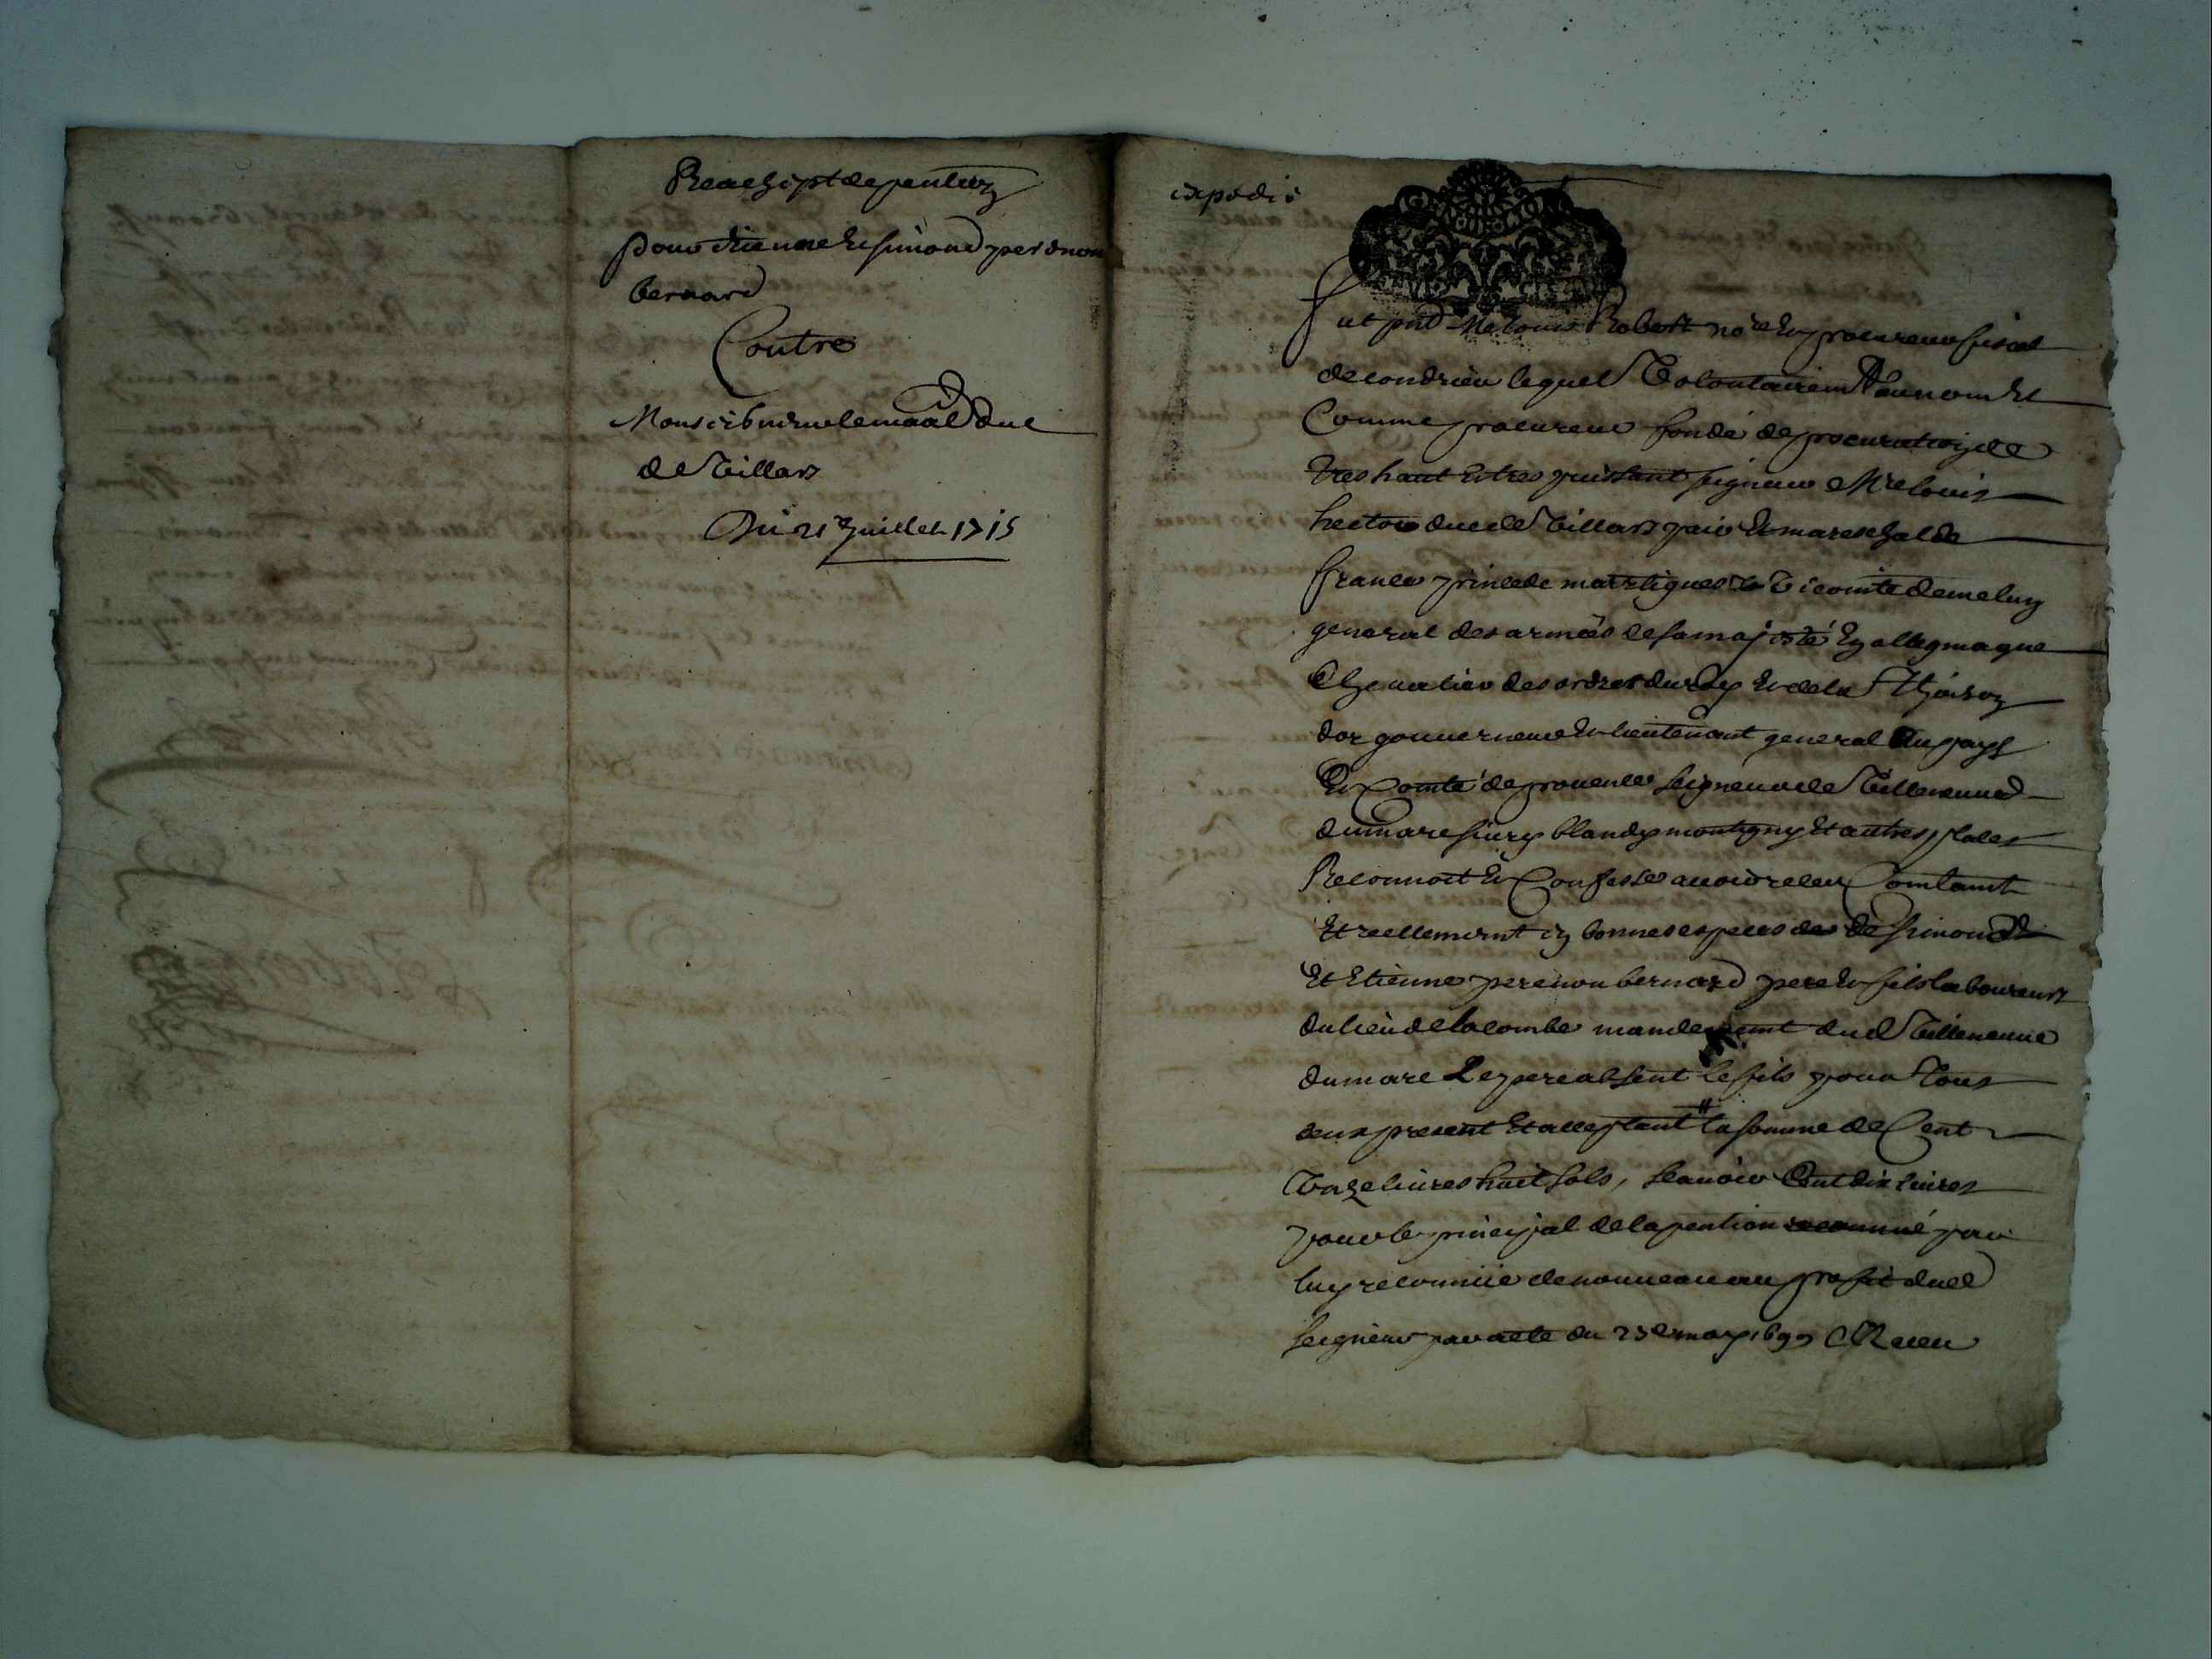 Reachept de pention
pour etienne et simond perenon
bernard
Contre
Monseigneur le maal duc
de Villars
Du 21e Juillet 1715
expedié
fut pnt Me Louis Robert nore et procureur fiscal
de condrieu lequel Volontairemt au nom et
Comme procureur fondé de procuration de
tres haut et tres puissant seigneur Mre louis
hector duc de Villars pair et mareschal de
france prince de martigues Vicomte de melun
general des armées de sa majesté En allegmagne
Chevalier des ordres du Roy et de la Thoison
dor gouverneur et lieutenant general du pays
Et Comté de provence seigneur de Villeneuve
dumarc sivry blandy montigny et autres places
Reconnoit et Confesse avoir receu Comtant
Et reellement en bonnes especes de simond
Et Etienne perenon bernard pere et fils laboureurs
du lieu de la combe mandement dud Villeneuve
dumarc Le pere absent le fils pour tous
deux present et acceptant la somme de Cent
Unze livres huit sols, scavoir Cent dix livres
pour le principal de la pention par
luy reconnüe de nouveau au profit dud
seigneur par acte du 23e may 1699 Receu